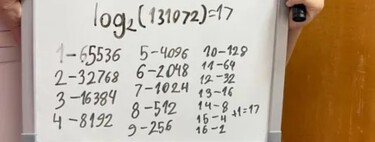 log₂(131072)=17
1-65536
2-32768
3-16384
4-8192
5-4096
6-2048
7-1024
8-512
9-256
10-128
11-64
12-32
13-16
14-8
15-4
16-2
+1=17